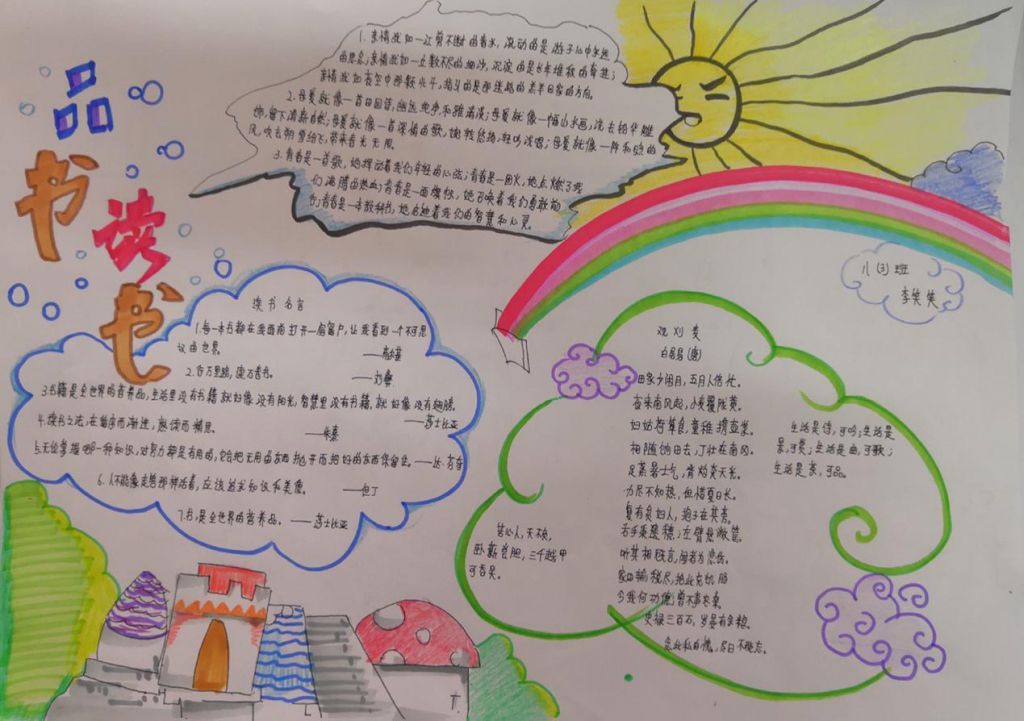 品书 读书
1. 亲情就如一江剪不断的春水，流动的是游子心中永远
的思念；亲情就如一丘数不尽的细沙，沉淀的是长年堆积的牵挂；
亲情就如夜空中那颗北斗，指引的是那迷路的羔羊回家的方向。
2. 母爱就像一首田园诗，幽远纯净和雅清淡；母爱就像一幅山水画，洗去铅华雕
饰，留下清新自然；母爱就像一首深情的歌，婉转悠扬，轻吟浅唱；母爱就像一阵和煦的
风，吹去朔雪纷飞，带来春光无限。
3. 青春是一首歌，她拨动着我们年轻的心弦；青春是一团火，她点燃了我
们沸腾的热血；青春是一面旗帜，她召唤着我们勇敢前
行；青春是一本教科书，她启迪着我们的智慧和心灵。
八(3)班
李
读书名言
1. 每一本书都在我面前打开一扇窗户，让我看到一个不可思
议的世界。
——高尔基
2. 行万里路，读万卷书。
——刘彝
3. 书籍是全世界的营养品，生活里没有书籍，就好像没有阳光；智慧里没有书籍，就好像没有翅膀。
——莎士比亚
4. 读书之法，在循序而渐进，熟读而精思。
——朱熹
5. 无论掌握哪一种知识，对智力都是有用的，它会把无用的东西抛开而把好的东西保留住。——达·芬奇
6. 人不能像走兽那样活着，应该追求知识和美德。
——但丁
7. 书，是全世界的营养品。——莎士比亚
观刈麦
白居易(唐)
田家少闲月，五月人倍忙。
夜来南风起，小麦覆陇黄。
妇姑荷箪食，童稚携壶浆。
相随饷田去，丁壮在南冈。
足蒸暑土气，背灼炎天光。
力尽不知热，但惜夏日长。
复有贫妇人，抱子在其旁。
右手秉遗穗，左臂悬敝筐。
听其相顾言，闻者为悲伤。
家田输税尽，拾此充饥肠
今我何功德，曾不事农桑
吏禄三百石，岁晏有余粮。
念此私自愧，尽日不能忘。
生活是诗，可吟；生活是
景，可赏；生活是曲，可歌；
生活是茶，可品。
苦心人，天不负，
卧薪尝胆，三千越甲
可吞吴。